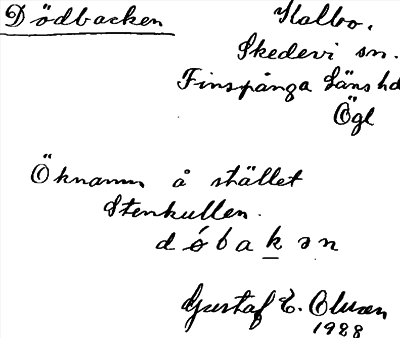 Dödbacken
Kalbo.
Skedevi sn.
Finspånga Läns hd
Ögl
Öknamn å stället
Stenkullen.
d ó b a k ə n
Gustaf E. Olsson
1928